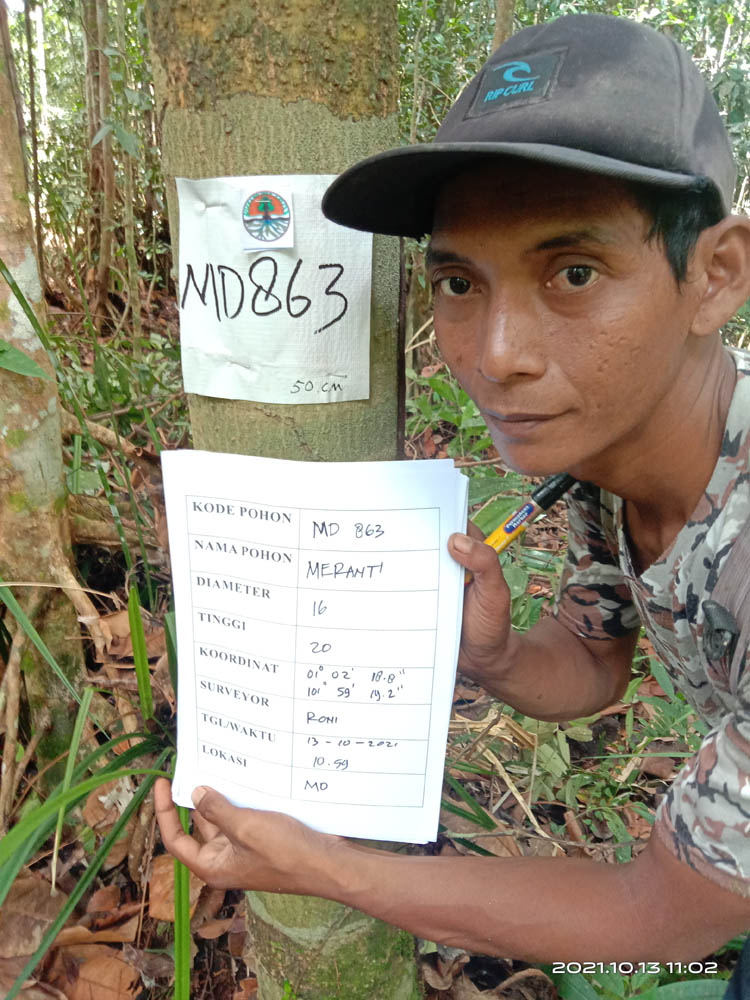 RIP CURL
MD863
50.cm
KODE POHON MD 863
NAMA POHON MERANTI
DIAMETER 16
TINGGI 20
KOORDINAT 01° 02' 18.8"
101° 59' 19.2"
SURVEYOR RONI
TGL/WAKTU 13-10-2021
10.59
LOKASI MD
Permanent Marker
2021.10.13 11:02